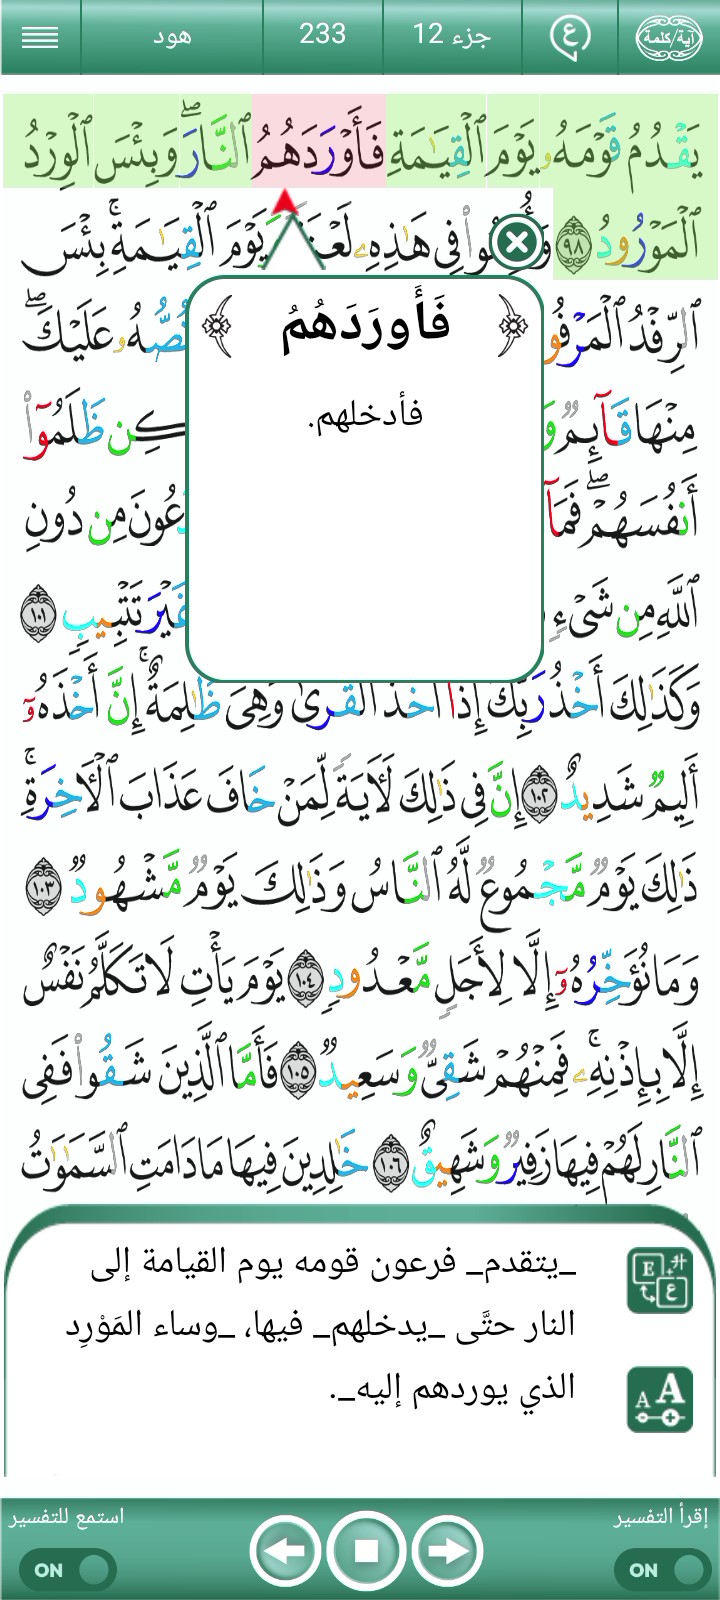 هود
233
جزء 12
ع
آية/كلمة
يَقْدُمُ قَوْمَهُۥ يَوْمَ ٱلْقِيَـٰمَةِ فَأَوْرَدَهُمُ ٱلنَّارَ ۖ وَبِئْسَ ٱلْوِرْدُ
ٱلْمَوْرُودُ ٩٨ فِى هَـٰذِهِۦ يَوْمَ ٱلْقِيَـٰمَةِ ۚ بِئْسَ
ٱلرِّفْدُ عَلَيْكَ ۖ
مِنْهَا قَآئِمٌ ظَلَمُوٓا۟
أَنفُسَهُمْ ۖ مِن دُونِ
ٱللَّهِ مِن شَىْءٍ غَيْرَ تَتْبِيبٍ ١٠١
وَكَذَٰلِكَ أَخْذُ رَبِّكَ إِذَآ أَخَذَ ٱلْقُرَىٰ وَهِىَ ظَـٰلِمَةٌ ۚ إِنَّ أَخْذَهُۥٓ
أَلِيمٌ شَدِيدٌ ١٠٢ إِنَّ فِى ذَٰلِكَ لَـَٔايَةً لِّمَنْ خَافَ عَذَابَ ٱلْـَٔاخِرَةِ ۚ
ذَٰلِكَ يَوْمٌ مَّجْمُوعٌ لَّهُ ٱلنَّاسُ وَذَٰلِكَ يَوْمٌ مَّشْهُودٌ ١٠٣
وَمَا نُؤَخِّرُهُۥٓ إِلَّا لِأَجَلٍ مَّعْدُودٍ ١٠٤ يَوْمَ يَأْتِ لَا تَكَلَّمُ نَفْسٌ
إِلَّا بِإِذْنِهِۦ ۚ فَمِنْهُمْ شَقِىٌّ وَسَعِيدٌ ١٠٥ فَأَمَّا ٱلَّذِينَ شَقُوا۟ فَفِى
ٱلنَّارِ لَهُمْ فِيهَا زَفِيرٌ وَشَهِيقٌ ١٠٦ خَـٰلِدِينَ فِيهَا مَا دَامَتِ ٱلسَّمَـٰوَٰتُ
فَأَورَدَهُمُ
فأدخلهم.
_يتقدم_ فرعون قومه يوم القيامة إلى
النار حتَّى _يدخلهم_ فيها، _وساء المَوْرِد
الذي يوردهم إليه_.
E
ع
A A
استمع للتفسير
إقرأ التفسير
ON
ON